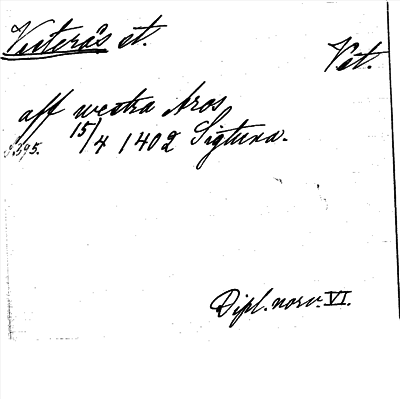 Västerås st.
Vät.
aff westra Aros
s.395. 15/4 1402 Sigtuna.
Dipl. norv. VI.